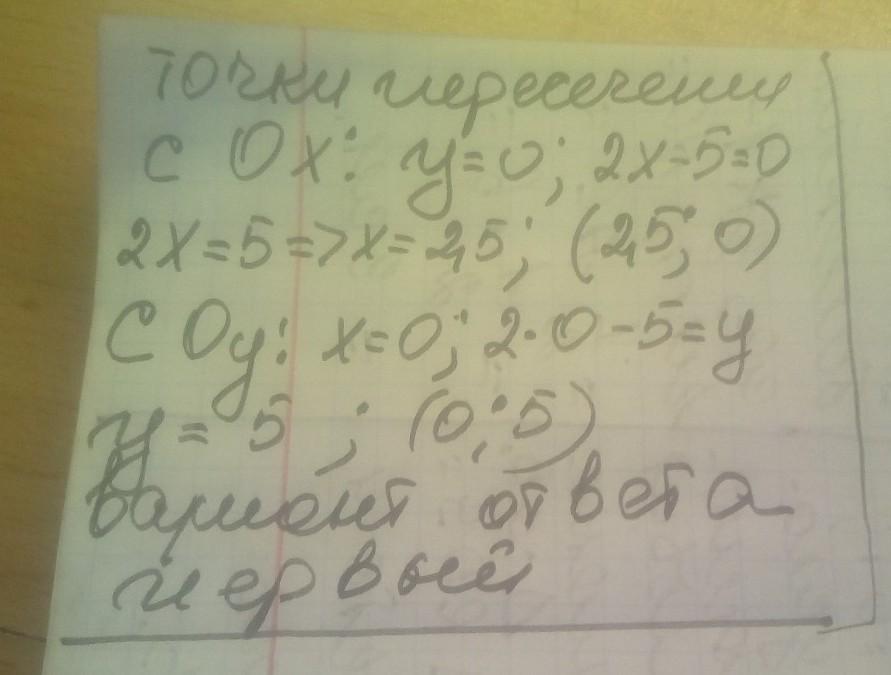 точки пересечения
с Ox: y=0; 2x-5=0
2x=5=>x=2,5; (2,5; 0)
С Oy: x=0; 2·0-5=y
y= 5 ; (0; 5)
вариант ответа
первый